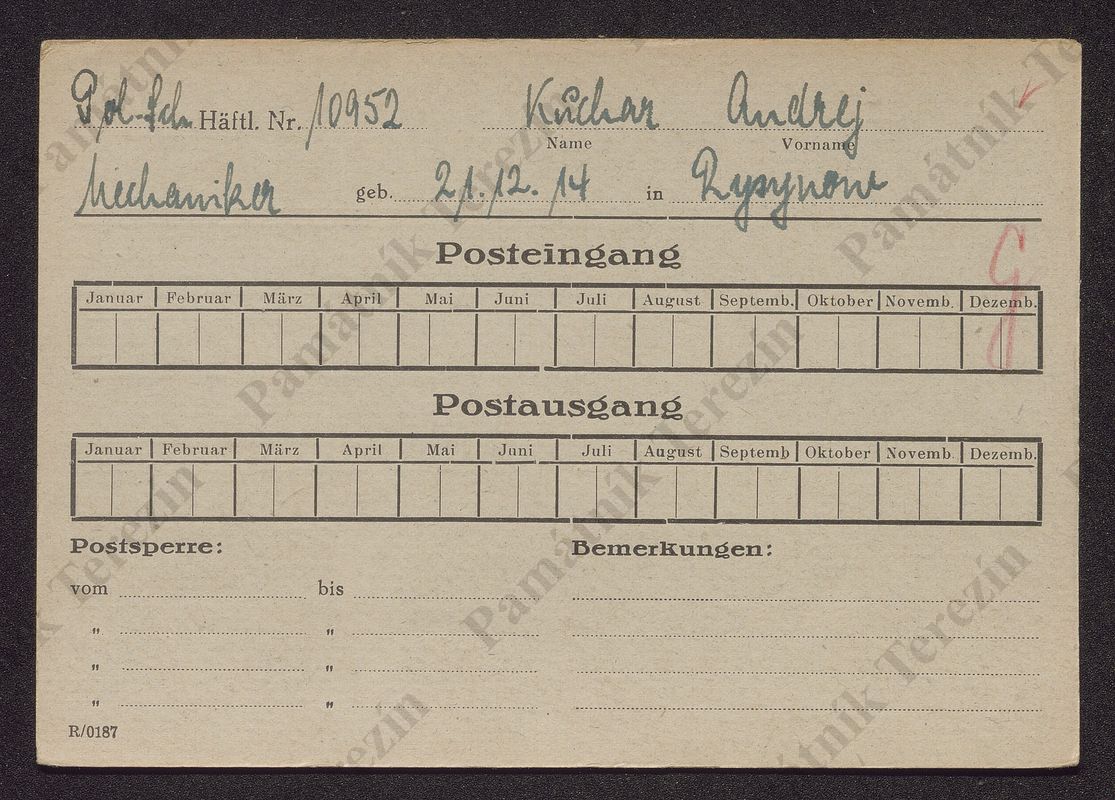 Pol. Sch. Häftl. Nr. 10952 Kuchar Andrej
Name Vorname
Mechaniker geb. 21.12.14 in Rysynow
Posteingang
Januar Februar März April Mai Juni Juli August Septemb. Oktober Novemb. Dezemb.
Postausgang
Januar Februar März April Mai Juni Juli August Septemb Oktober Novemb. Dezemb.
Postsperre: Bemerkungen:
vom bis
" "
" "
" "
R/0187
Památník Terezín